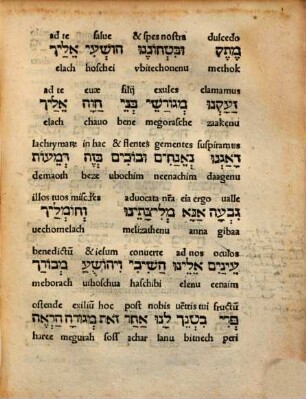 ad te salue & spes nostra dulcedo
מֶתֶק וּבִטְחוֹנֵנוּ הוֹשְׁעִי אֵלַיִךְ
elach hoschei vbitechonenu methok
ad te euæ filij exules clamamus
זָעַקְנוּ מְגוֹרְשֵׁי בְּנֵי חַוָּה אֵלַיִךְ
elach chauo bene megorasche zaakenu
lachrymarũ in hac & flentes gementes suspiramus
דָּאַגְנוּ נֶאֱנָחִים וּבוֹכִים בְּזֶה דְמָעוֹת
demaoth beze ubochim neenachim daagenu
illos tuos advocata nr̃a eia ergo valle
גִּבְעָה אָנָּא מְלִיצָתֵינוּ
uechomelach melizathenu anna gibaa
benedictũ & iesum conuerte ad nos oculos
עֵינַיִם אֵלֵינוּ הָשִׁיבִי וִיהוֹשֻׁעַ מְבוֹרָךְ
meborach uihoschua haschibi elenu eenaim
ostende exiliũ hoc post nobis vẽtris tui fructũ
פְּרִי בִטְנֵךְ לָנוּ אַחַר זֹאת מְגוּרָה הַרְאֶה
haree megurah soss achar lanu bitnech peri